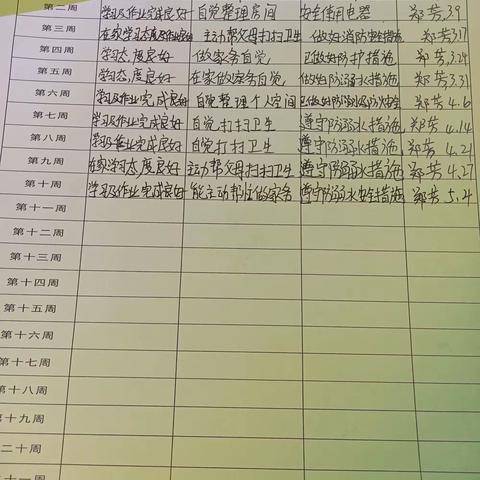 第二周 学习及作业完成良好 自觉整理房间 安全使用电器 郑芳.3.9
第三周 在家学习态度及作业良好 主动帮父母扫扫卫生 做好消防安全措施 郑芳3.17
第四周 学习态度良好 做家务自觉, 已做好防护措施 郑芳,3.24
第五周 学习态度良好 在家做家务自觉, 做好防溺水措施 郑芳3.31
第六周 学习及作业完成良好 自觉整理个人空间 已做好防溺水 郑芳4.6
第七周 学习及作业完成良好 自觉打扫卫生 遵守防溺水措施 郑芳4.14
第八周 学习及作业完成良好 自觉打扫卫生 遵守防溺水措施, 郑芳4.21
第九周 在家学习态度良好 主动帮父母扫扫卫生 遵守防溺水措施 郑芳4.27
第十周 学习及作业完成良好 能主动帮忙做家务 遵守防溺水安全措施 郑芳5.4
第十一周
第十二周
第十三周
第十四周
第十五周
第十六周
第十七周
第十八周
第十九周
二十周